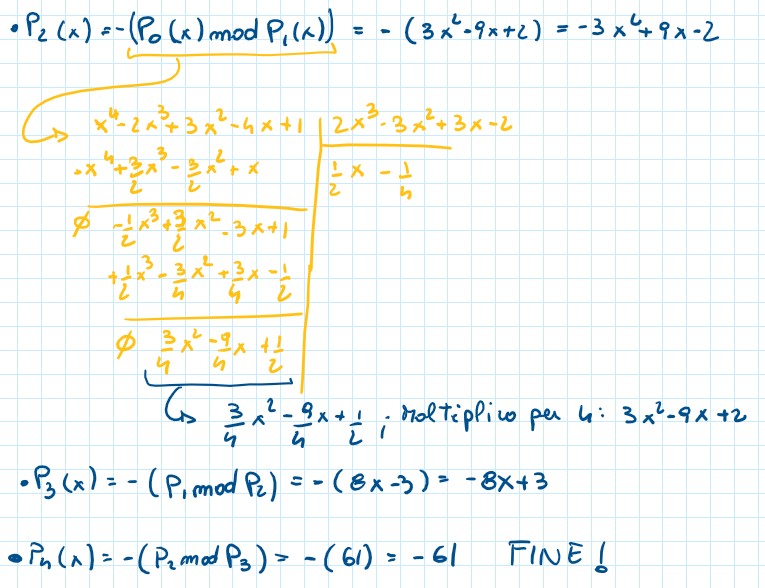 • P₂(x) = -(P₀(x) mod P₁(x)) = - (3x² - 9x + 2) = -3x² + 9x - 2
x⁴ - 2x³ + 3x² - 4x + 1 | 2x³ - 3x² + 3x - 2
-x⁴ + 3/2 x³ - 3/2 x² + x | 1/2 x - 1/4
∅ -1/2 x³ + 3/2 x² - 3x + 1
+1/2 x³ - 3/4 x² + 3/4 x - 1/2
∅ 3/4 x² - 9/4 x + 1/2
3/4 x² - 9/4 x + 1/2 ; moltiplico per 4: 3x² - 9x + 2
• P₃(x) = - (P₁ mod P₂) = - (8x - 3) = -8x + 3
• P₄(x) = -(P₂ mod P₃) = - (61) = -61 FINE!